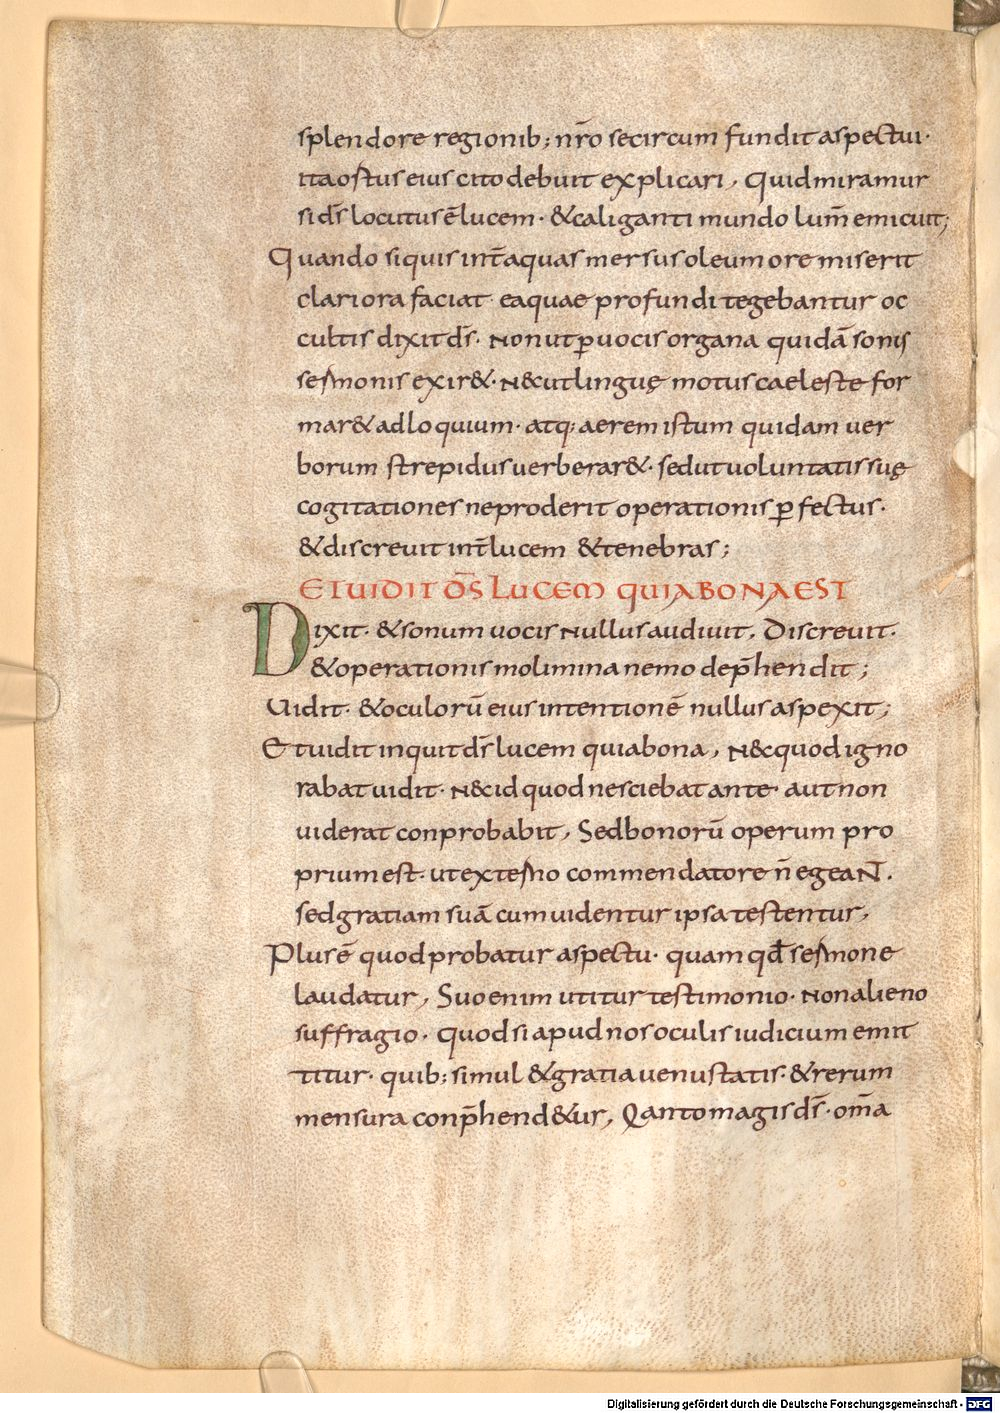 splendore regionib; nr̄o se circum fundit aspectui·
ita ortus eius cito debuit explicari, Quid miramur
si d̄s locutus ē lucem· & caliganti mundo lum̄ emicuit;
Quando si quis int̄ aquas mersus oleum ore miserit
clariora faciat ea quae profundi tegebantur oc
cultis dixit d̄s· Non ut p̄ uocis organa quidā sonis
sermonis exir&· N& ut linguę motus caeleste for
mar& adloquium· atq; aerem istum quidam uer
borum strepidus uerberar&· sed ut uoluntatis suę
cogitationes ne proderit operationis p̄fectus·
& discreuit int̄ lucem & tenebras;
ET UIDIT D̄S LUCEM QUIA BONA EST
Dixit· & sonum uocis Nullus audiuit, Discreuit·
& operationis molimina nemo dep̄hendit;
Uidit· & oculorū eius intentionē nullus aspexit;
Et uidit inquit d̄s lucem quia bona, N& quod igno
rabat uidit· N& id quod nesciebat ante· aut non
uiderat conprobabit, Sed bonorū operum pro
prium est· ut externo commendatore n̄ egeaNT·
sed gratiam suā cum uidentur ipsa testentur,
Plus ē quod probatur aspectu· quam qđ sermone
laudatur, Suo enim utitur testimonio· Non alieno
suffragio· Quod si apud nos oculis iudicium emit
titur· quib; simul & gratia uenustatis· & rerum
mensura conp̄hend&ur, Qanto magis d̄s· om̄a
Digitalisierung gefördert durch die Deutsche Forschungsgemeinschaft - DFG